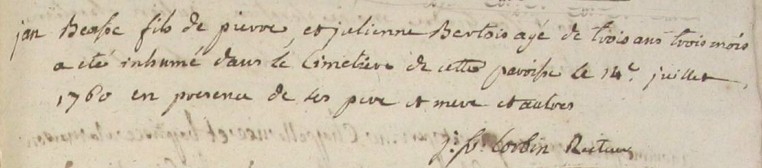 jan Besse fils de pierre, et julienne Bertois agé de trois ans trois mois
a eté inhumé dans le Cimetiere de cette paroisse le 14e. juillet,
1760 en presence de ses pere et mere et autres
j. f. Corbin Recteur